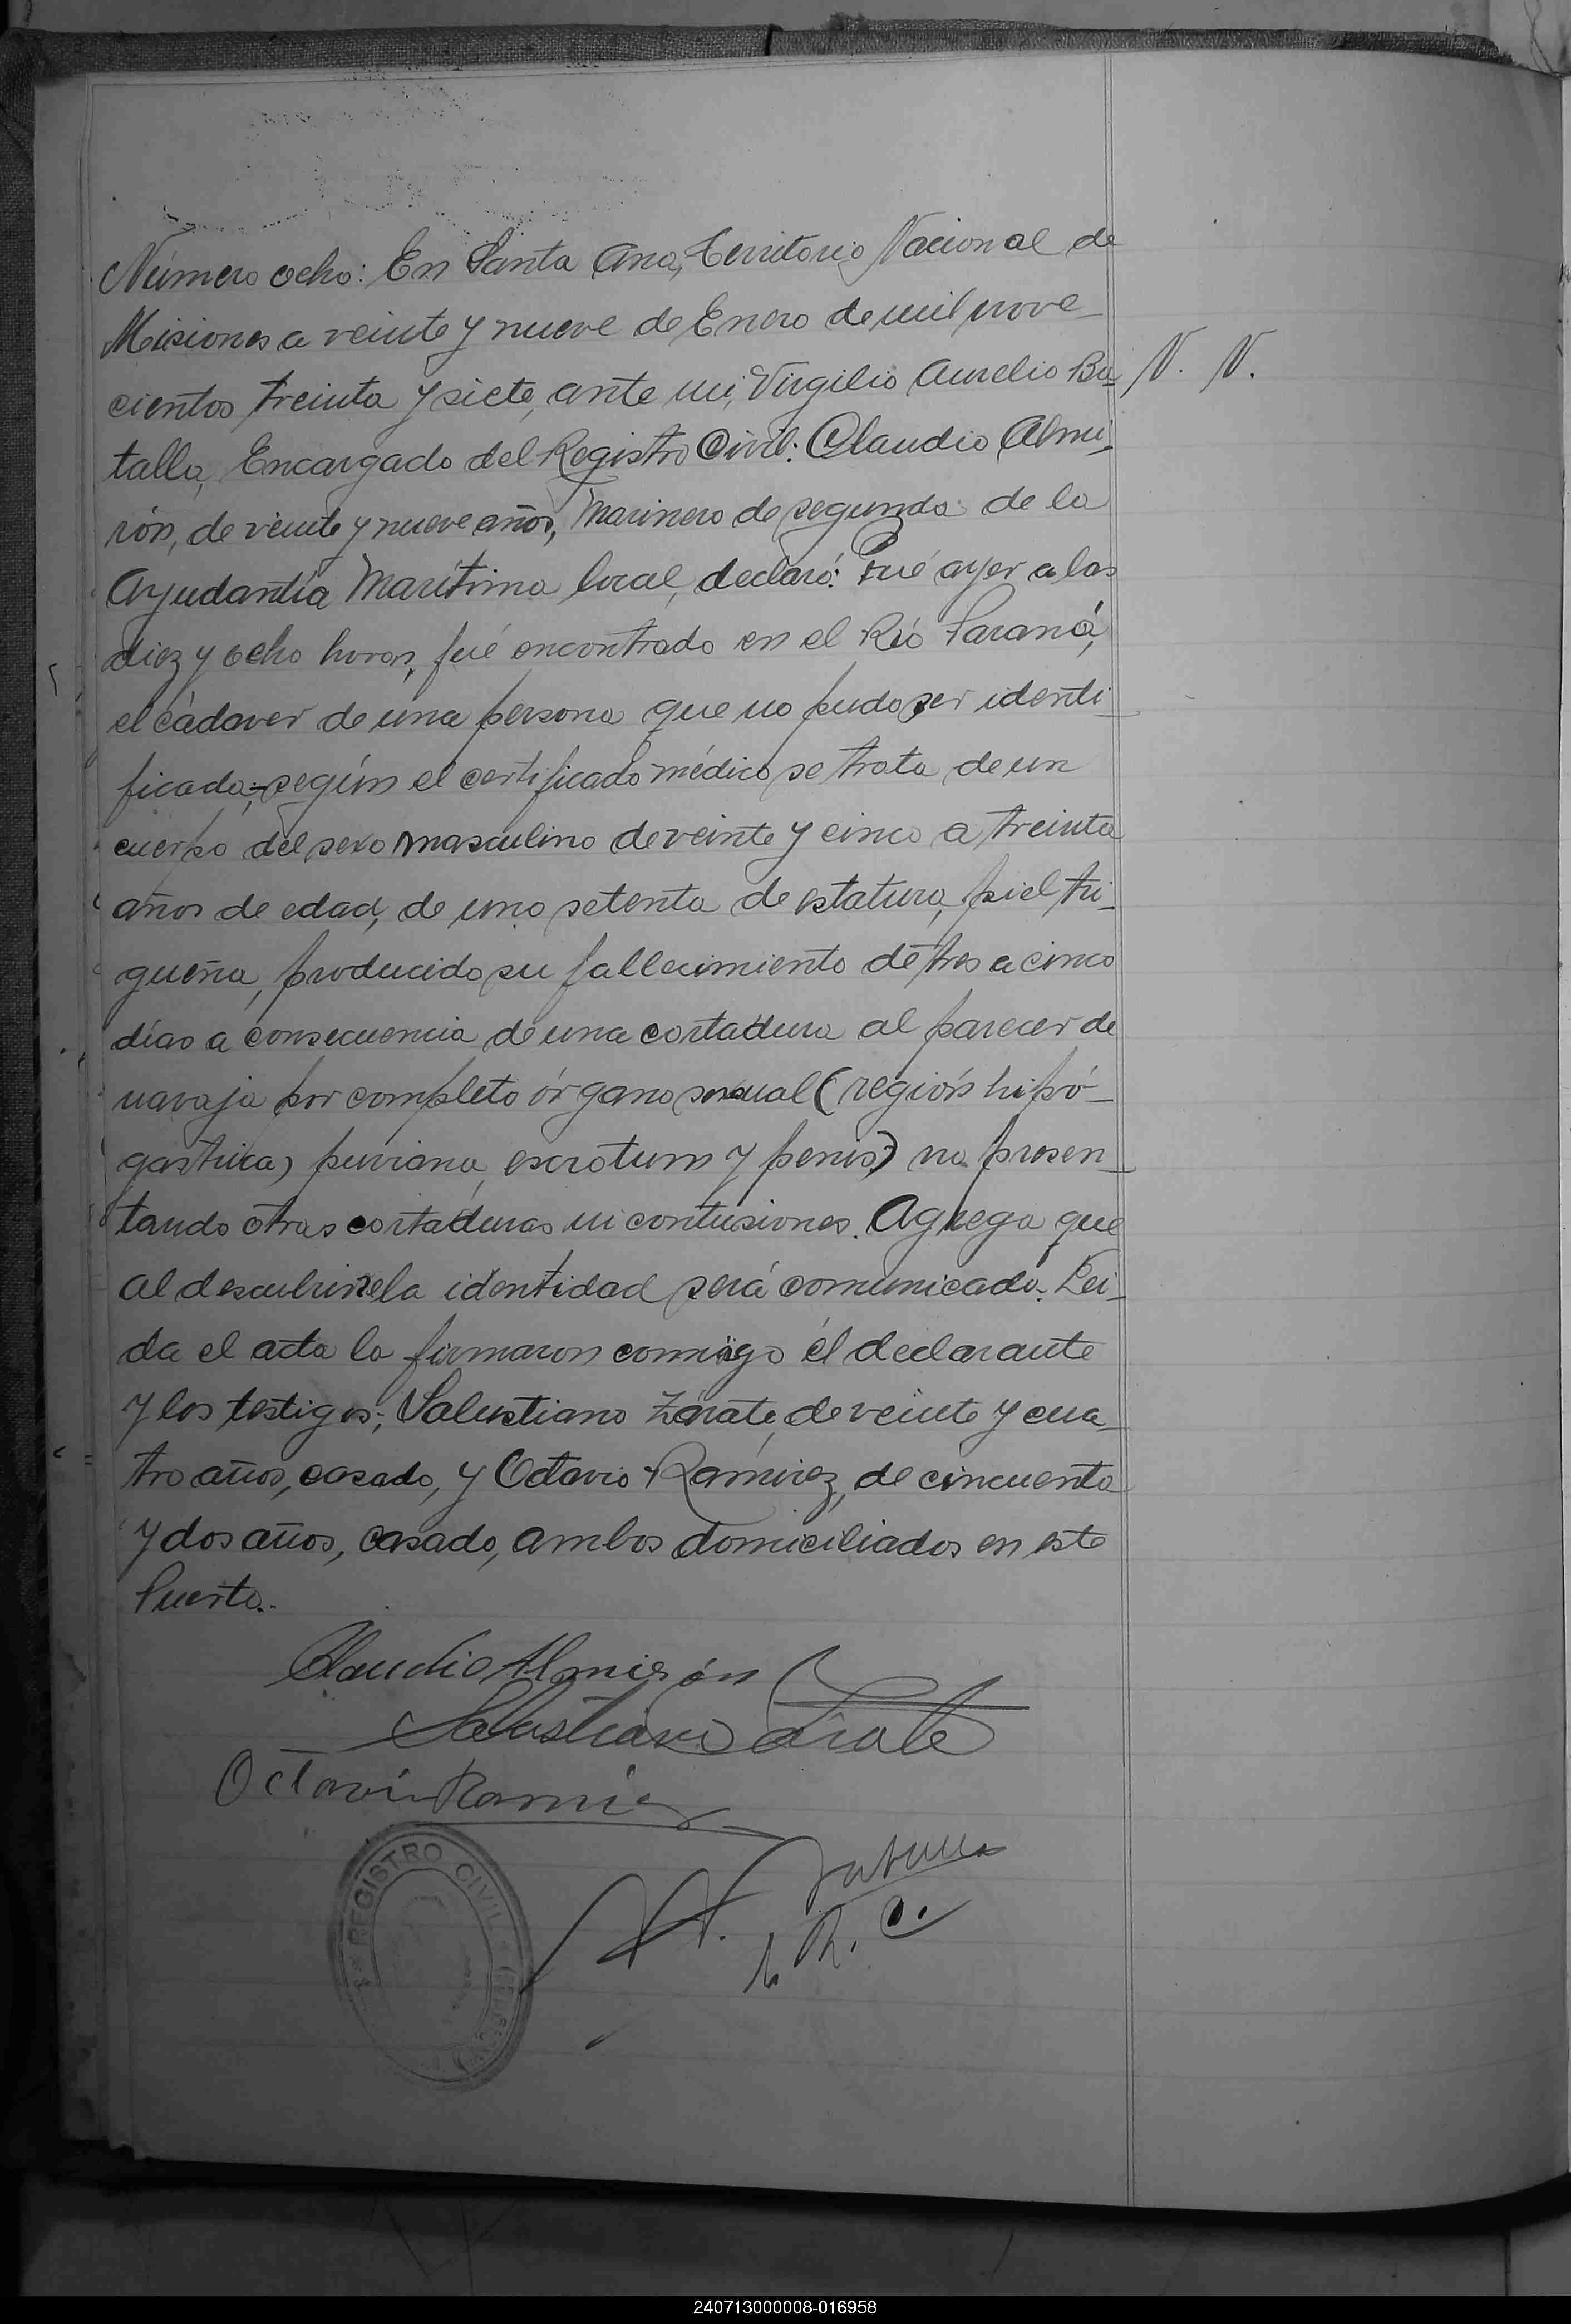 Número ocho: En Santa Ana, Territorio Nacional de
Misiones a veinte y nueve de Enero de mil nove-
cientos treinta y siete, ante mi, Virgilio Aurelio Ba-
N. N.
talla, Encargado del Registro Civil: Claudio Almi-
rón, de veinte y nueve años, Marinero de segunda de la
Ayudantía Marítima local, declaró: Que ayer a las
diez y ocho horas, fué encontrado en el Río Paraná,
el cadáver de una persona que no pudo ser identi-
ficada; según el certificado médico se trata de un
cuerpo del sexo masculino de veinte y cinco a treinta
años de edad, de uno setenta de estatura, piel tri-
gueña, producido su fallecimiento de tres a cinco
días a consecuencia de una cortadura al parecer de
navaja por completo órgano sexual (región hipó-
gastrica) escrotum y penis) no presen-
tando otras cortaduras ni contusiones. Agrega que
al descubrirse la identidad será comunicado. Lei-
da el acta la firmaron conmigo él declarante
y los testigos; Salustiano Zárate, de veinte y cua-
tro años, casado, y Octavio Ramirez, de cincuenta
y dos años, casado, ambos domiciliados en este
Puerto.
Claudio Almirón
Salustiano Zárate
Octavio Ramirez
REGISTRO CIVIL
240713000008-016958